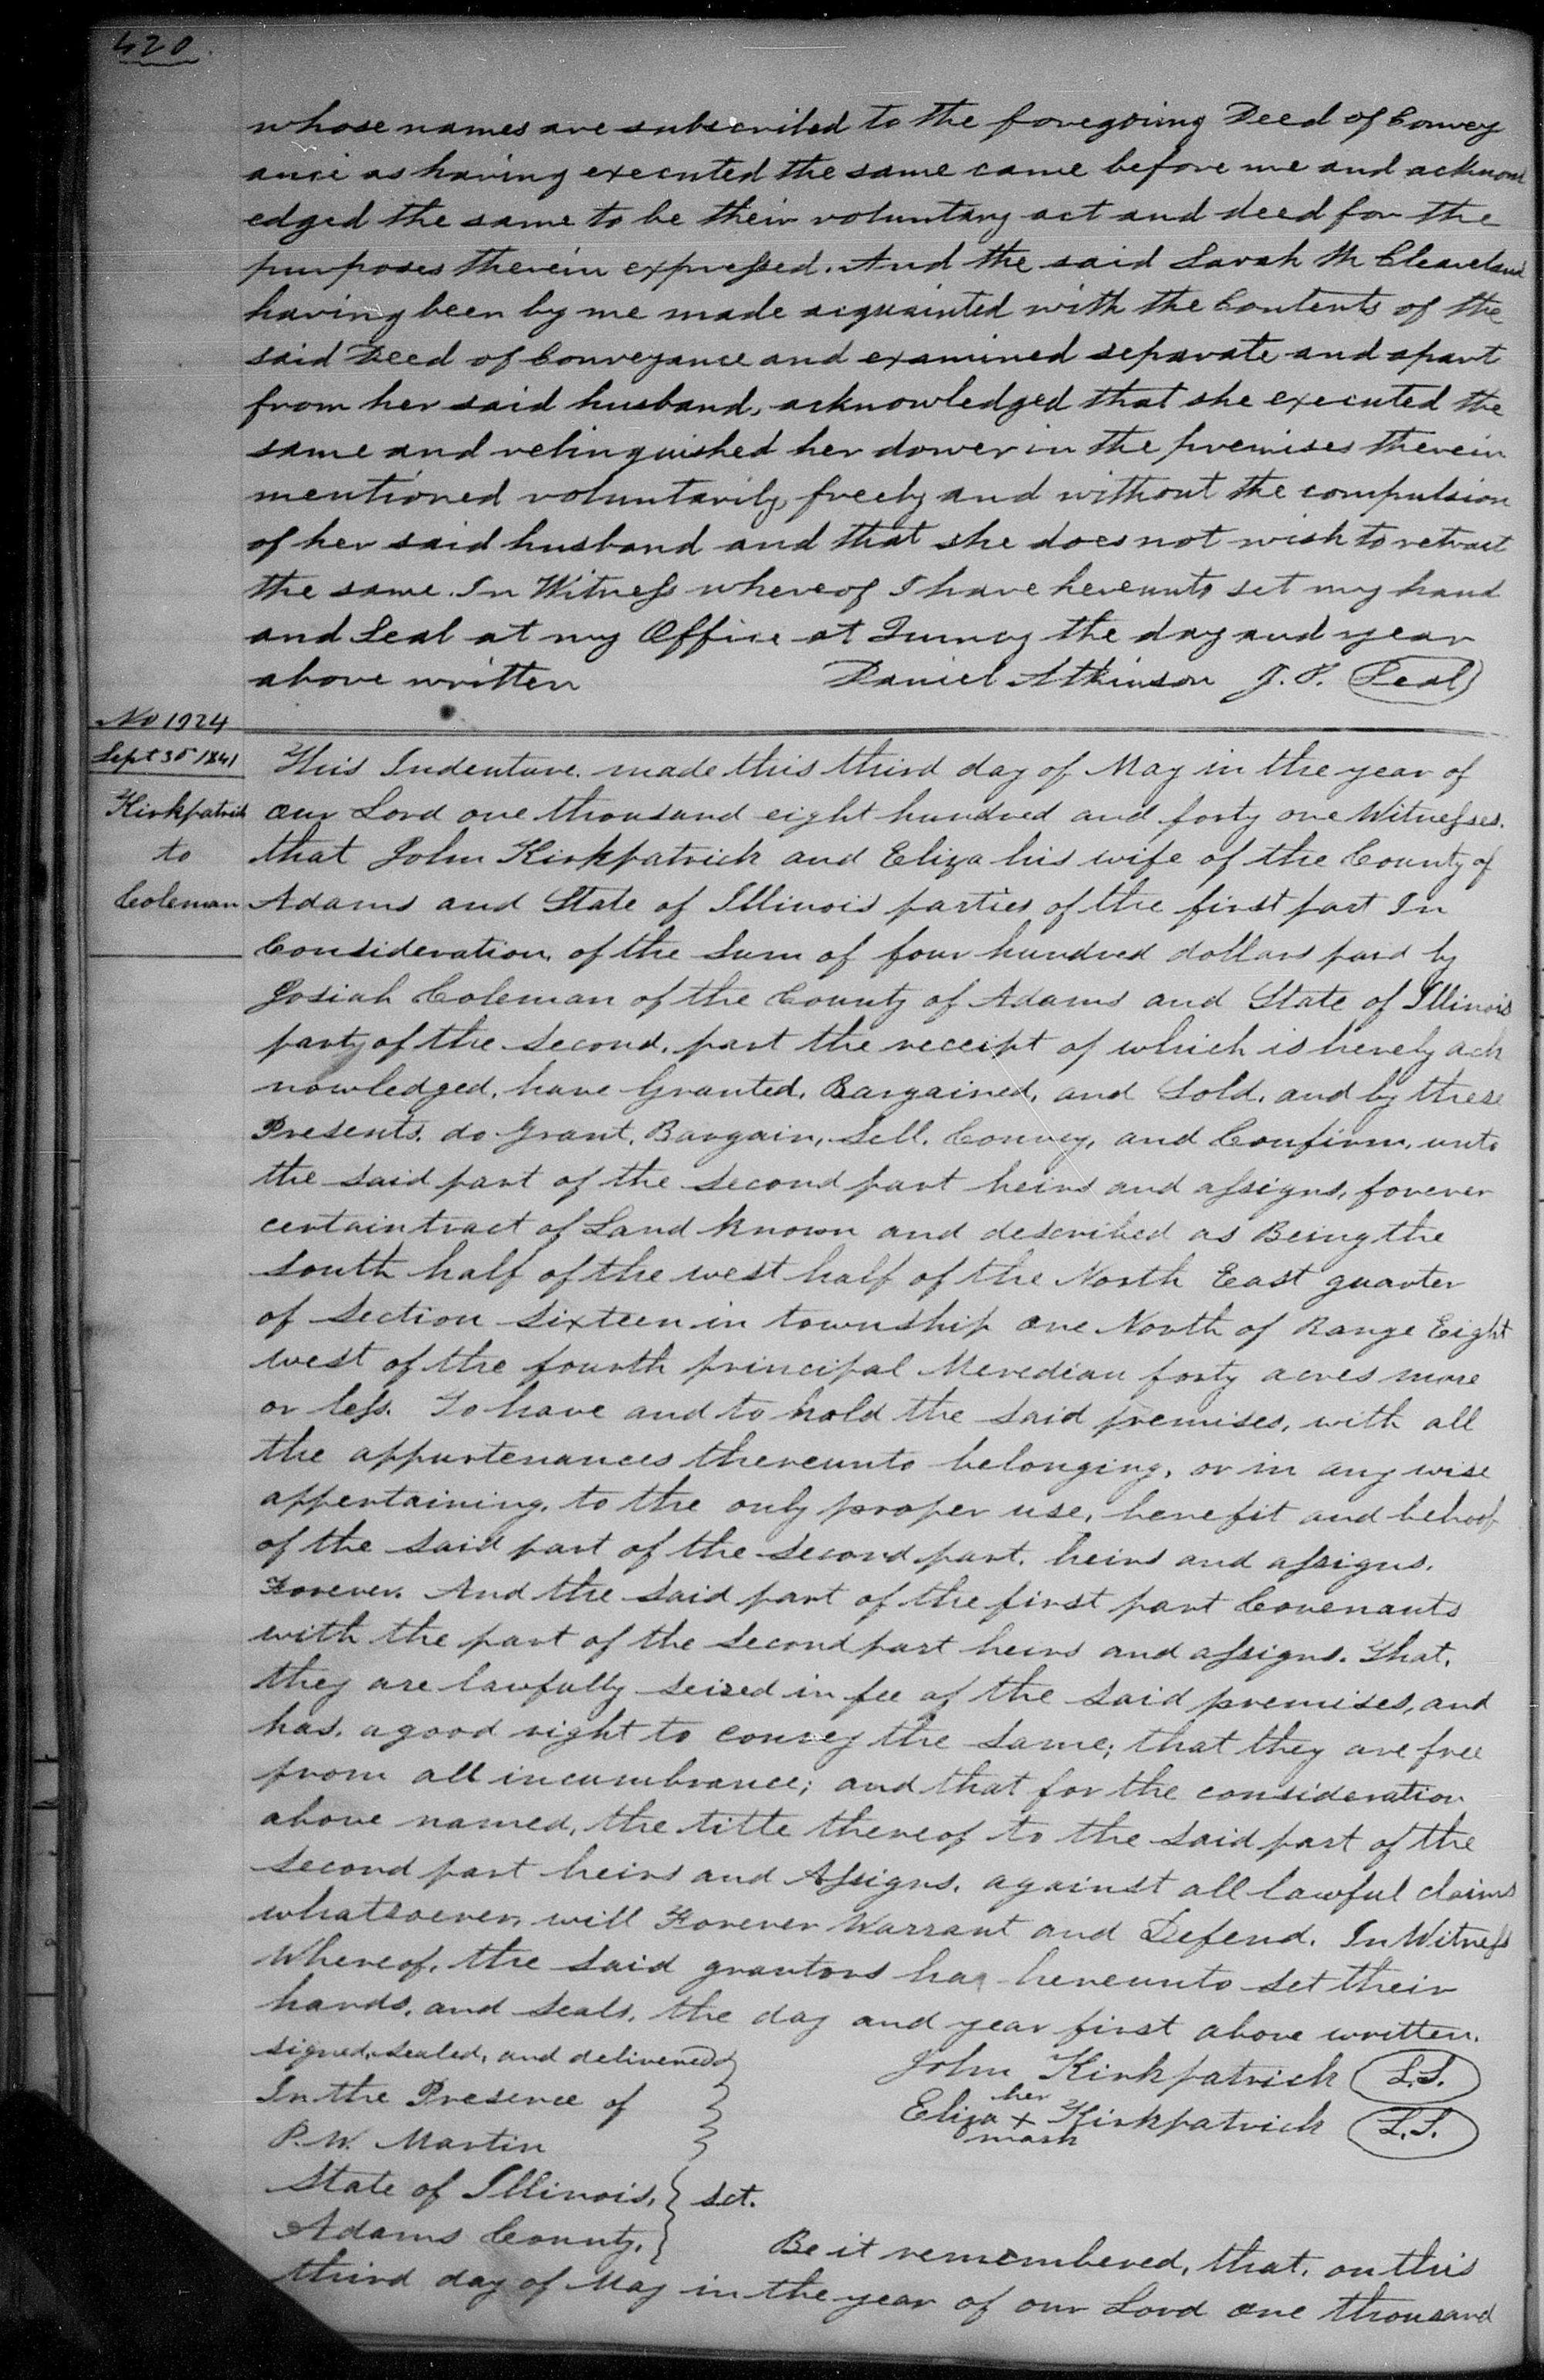 420.
whose names are subscribed to the foregoing Deed of Convey
ance as having executed the same came before me and acknowl
edged the same to be their voluntary act and deed for the
purposes therein expressed. And the said Sarah M Cleaveland
having been by me made acquainted with the Contents of the
said Deed of Conveyance and examined separate and apart
from her said husband, acknowledged that she executed the
same and relinquished her dower in the premises therein
mentioned voluntarily, freely and without the compulsion
of her said husband and that she does not wish to retract
the same. In Witness whereof I have hereunto set my hand
and Seal at my Office at Quincy the day and year
above written Daniel Atkinson J. P. Seal
No 1924
Sept 30 1841
Kirkpatrick
to
Coleman
This Indenture. made this third day of May in the year of
our Lord one thousand eight hundred and forty one Witnesses.
that John Kirkpatrick and Eliza his wife of the County of
Adams and State of Illinois parties of the first part In
Consideration, of the Sum of four hundred dollars paid by
Josiah Coleman of the County of Adams and State of Illinois
party of the second, part the receipt of which is hereby ack
nowledged, have Granted, Bargained, and Sold, and by these
Presents, do Grant, Bargain, Sell, Convey, and Confirm, unto
the said part of the second part heirs and assigns, forever
certain tract of Land known and described as Being the
South half of the west half of the North East quarter
of Section Sixteen in township one North of Range Eight
west of the fourth principal Meredian forty acres more
or less. To have and to hold the said premises, with all
the appurtenances thereunto belonging, or in any wise
appertaining, to the only proper use, benefit and behoof
of the said part of the second part, heirs and assigns.
Forever. And the said part of the first part Covenants
with the part of the second part heirs and assigns. That,
they are lawfully seized in fee of the said premises, and
has, a good right to convey the same; that they are free
from all incumbrance; and that for the consideration
above named, the title thereof to the said part of the
second part heirs and Assigns, against all lawful claims
whatsoever, will Forever Warrant and Defend. In Witness
Whereof, the said grantors has hereunto set their
hands, and seals, the day and year first above written.
signed, sealed, and delivered
In the Presence of
P. W. Martin
John Kirkpatrick L.S.
her
Eliza + Kirkpatrick L.S.
mark
State of Illinois, sct.
Adams County,
Be it remembered, that, on this
third day of May in the year of our Lord one thousand